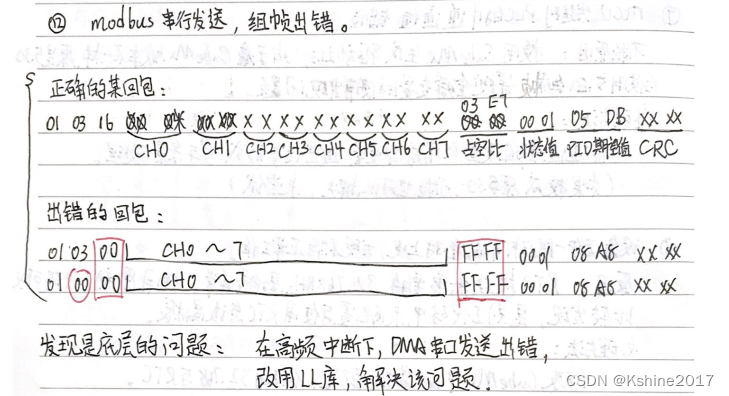 ⑫ modbus 串行发送，组帧出错。
正确的某回包：
03 E7
01 03 16 XX XX XX XX XX XX XX XX XX XX XX XX 00 01 05 DB XX XX
CH0 CH1 CH2 CH3 CH4 CH5 CH6 CH7 占空比 状态值 PID期望值 CRC
出错的回包：
01 03 00 CH0 ~ 7 FF FF 00 01 08 A8 XX XX
01 00 00 CH0 ~ 7 FF FF 00 01 08 A8 XX XX
发现是底层的问题： 在高频中断下，DMA串口发送出错，
改用LL库，解决该问题。
CSDN @Kshine2017